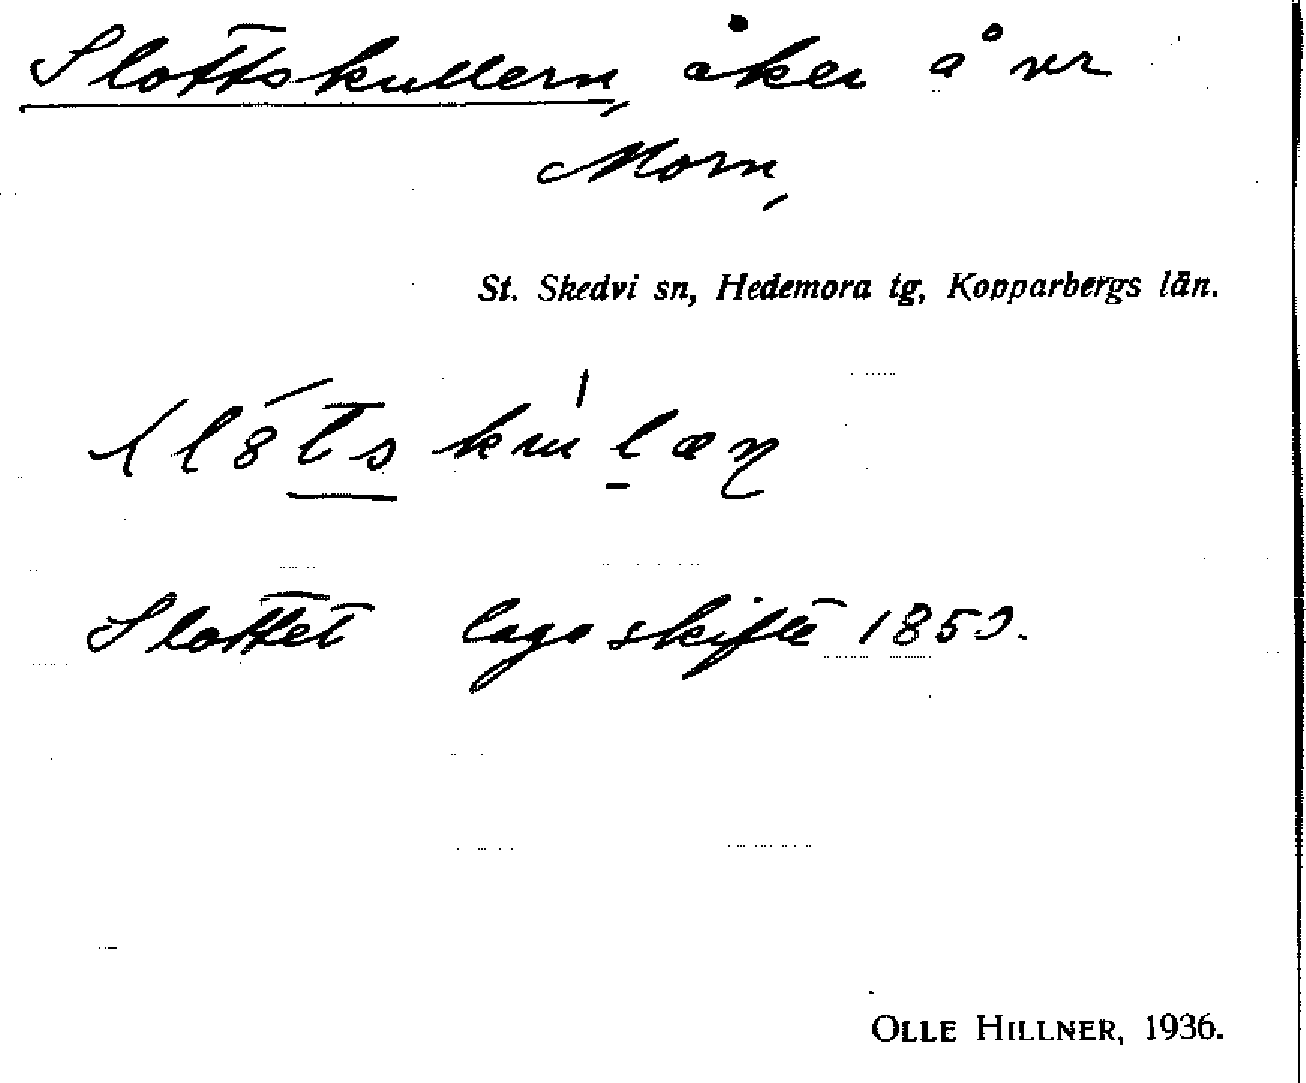 Slottskullern, åker å vr
Morn,
St. Skedvi sn, Hedemora tg, Kopparbergs län.
Slottet laga skifte 1850.
OLLE HILLNER, 1936.